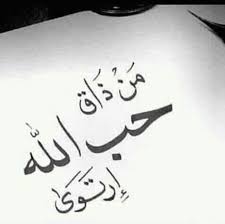 مَنْ ذَاق
حب الله
إرتوَى